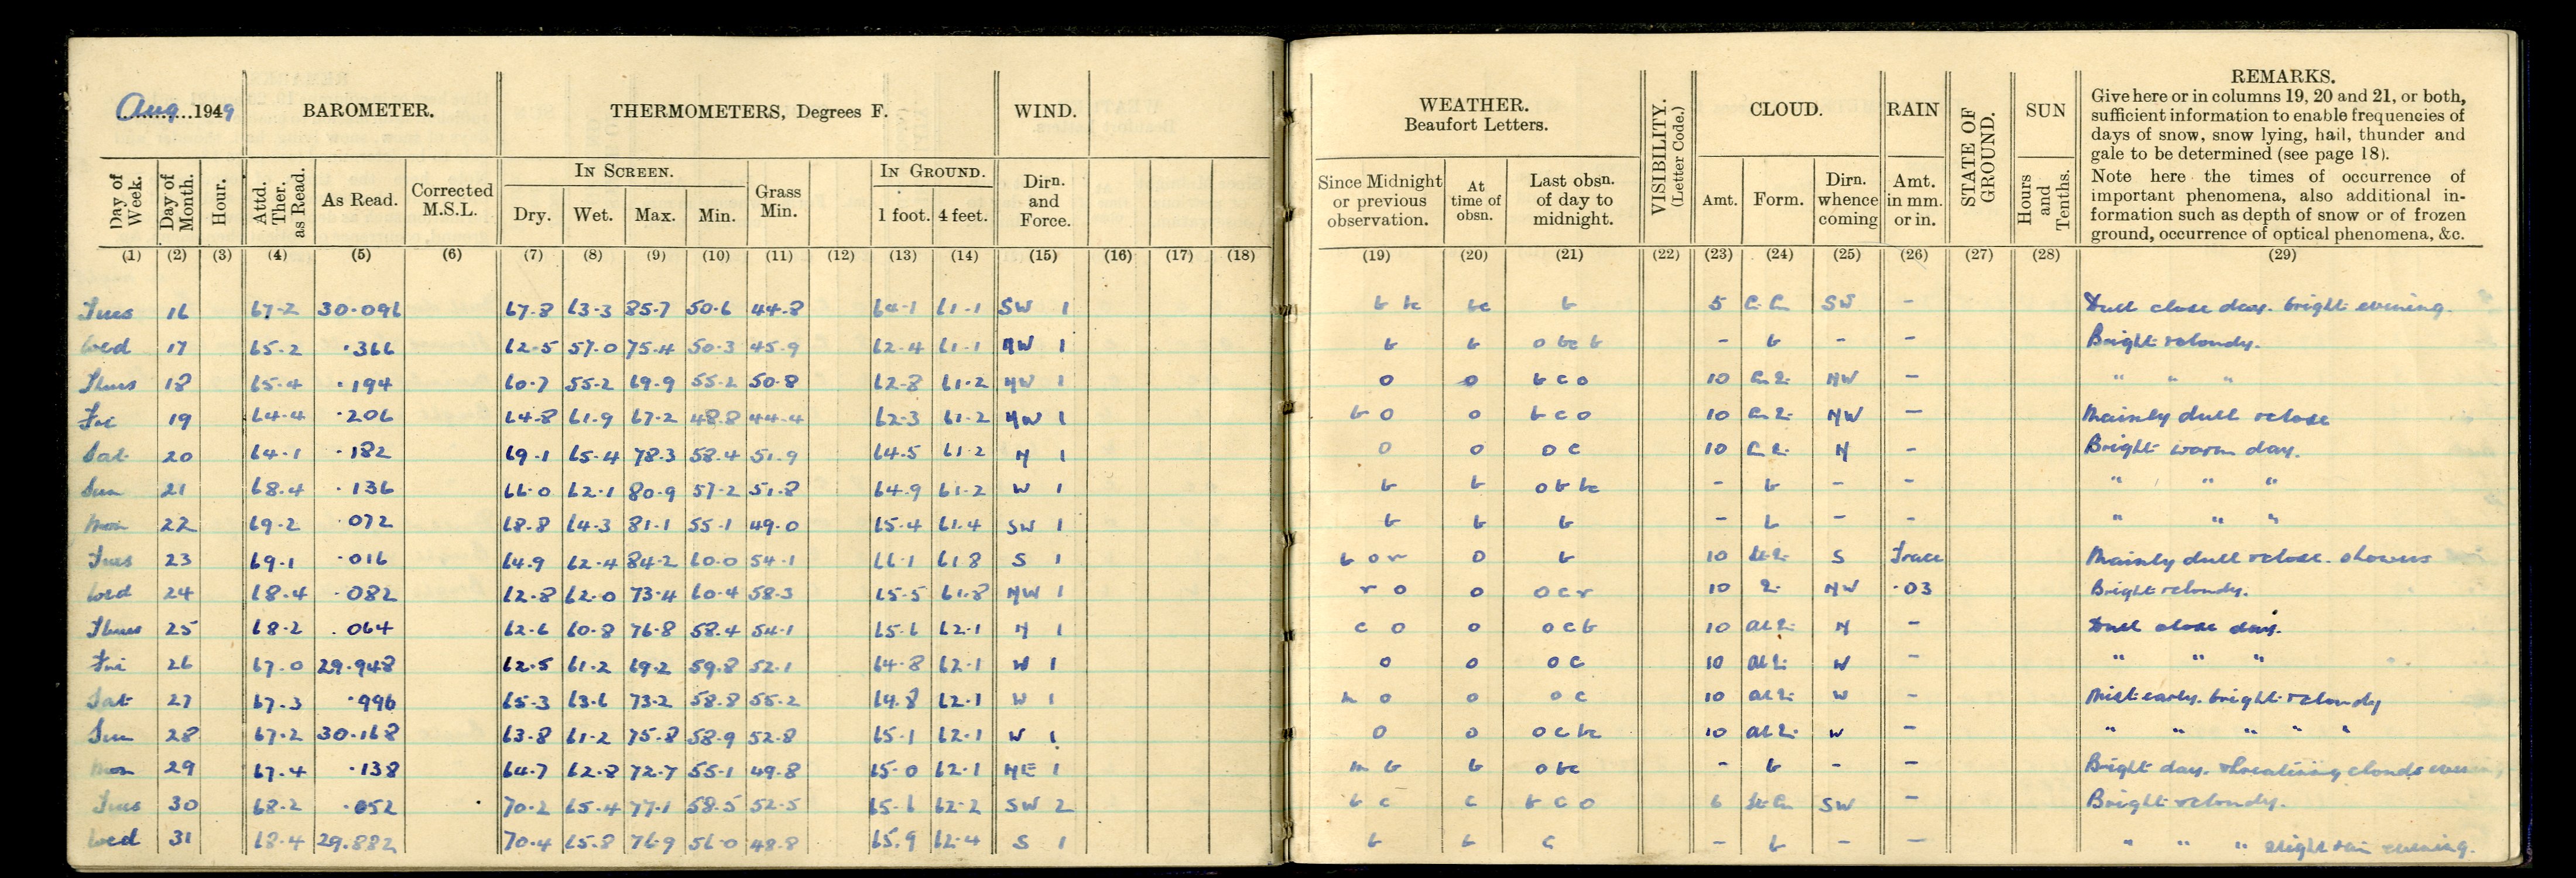 Aug 1949 BAROMETER. THERMOMETERS, Degrees F. WIND. WEATHER. Beaufort Letters. VISIBILITY. (Letter Code.) CLOUD. RAIN STATE OF GROUND. SUN REMARKS.
Give here or in columns 19, 20 and 21, or both,
sufficient information to enable frequencies of
days of snow, snow lying, hail, thunder and
gale to be determined (see page 18).
Note here the times of occurrence of
important phenomena, also additional in-
formation such as depth of snow or of frozen
ground, occurrence of optical phenomena, &c.
Day of Week. Day of Month. Hour. Attd. Ther. as Read. As Read. Corrected M.S.L. IN SCREEN. Dry. Wet. Max. Min. Grass Min. IN GROUND. 1 foot. 4 feet. Dirn. and Force. Since Midnight or previous observation. At time of obsn. Last obsn. of day to midnight. Amt. Form. Dirn. whence coming Amt. in mm. or in. Hours and Tenths.
(1) (2) (3) (4) (5) (6) (7) (8) (9) (10) (11) (12) (13) (14) (15) (16) (17) (18) (19) (20) (21) (22) (23) (24) (25) (26) (27) (28) (29)
Tues 16 67.2 30.096 67.8 63.3 85.7 50.6 44.8 64.1 61.1 SW 1 b bc bc b 5 SW - Dull close day. bright evening.
Wed 17 65.2 .366 62.5 57.0 75.4 50.3 45.9 62.4 61.1 NW 1 b b o bc b - b - - Bright & cloudy.
Thurs 18 65.4 .194 60.7 55.2 69.9 55.2 50.8 62.8 61.2 NW 1 o o b c o 10 NW - " " "
Fri 19 64.4 .206 64.8 61.9 67.2 48.8 44.4 62.3 61.2 NW 1 b o o b c o 10 NW - Mainly dull & close
Sat 20 64.1 .182 69.1 65.4 78.3 58.4 51.9 64.5 61.2 N 1 o o o c 10 N - Bright warm day.
Sun 21 68.4 .136 66.0 62.1 80.9 57.2 51.8 64.9 61.2 W 1 b b o b bc - b - - " " "
Mon 22 69.2 .072 68.8 64.3 81.1 55.1 49.0 65.4 61.4 SW 1 b b b - b - - " " "
Tues 23 69.1 .016 64.9 62.4 84.2 60.0 54.1 66.1 61.8 S 1 b o r o b 10 S Trace Mainly dull & close. showers
Wed 24 68.4 .082 62.8 62.0 73.4 60.4 58.3 65.5 61.8 NW 1 r o o o c r 10 NW .03 Bright & cloudy.
Thurs 25 68.2 .064 62.6 60.8 76.8 58.4 54.1 65.6 62.1 N 1 c o o o c b 10 N - Dull close day.
Fri 26 67.0 29.948 62.5 61.2 69.2 59.8 52.1 64.8 62.1 W 1 o o o c 10 W - " " "
Sat 27 67.3 .996 65.3 63.6 73.2 58.8 55.2 64.8 62.1 W 1 m o o o c 10 W - Mist early. bright & cloudy
Sun 28 67.2 30.168 63.8 61.2 75.8 58.9 52.8 65.1 62.1 W 1 o o o c bc 10 W - " " " " "
Mon 29 67.4 .138 64.7 62.8 72.7 55.1 49.8 65.0 62.1 NE 1 m b b o bc - b - - Bright day. threatening clouds evening
Tues 30 68.2 .052 70.2 65.4 77.1 58.5 52.5 65.6 62.2 SW 2 b c c b c o 6 SW - Bright & cloudy.
Wed 31 68.4 29.882 70.4 65.8 76.9 56.0 48.8 65.9 62.4 S 1 b b c - b - - " " " slight rain evening.